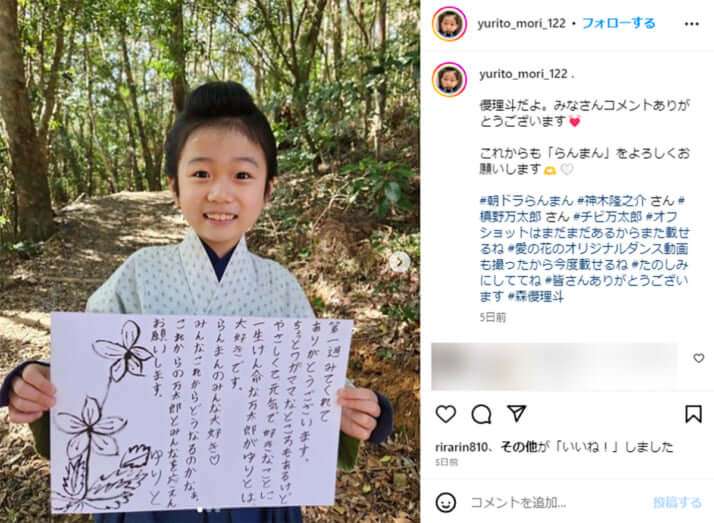 第一週みてくれて
ありがとうございます。
ちょっとワガママなところもあるけど
やさしくて元気で好きなことに
一生けん命な万太郎がゆりとは
大好きです。
らんまんのみんな大好き♡
みんなこれからどうなるのかなぁ。
これからの万太郎とみんなをおうえん
お願いします。
ゆりと
yurito_mori_122 • フォローする
yurito_mori_122 .
優理斗だよ。みなさんコメントありが
とうございます💓
これからも「らんまん」をよろしくお
願いします🫶 ♡
#朝ドラらんまん #神木隆之介 さん #
槙野万太郎 さん #チビ万太郎 #オフ
ショットはまだまだあるからまた載せ
るね #愛の花のオリジナルダンス動画
も撮ったから今度載せるね #たのしみ
にしててね #皆さんありがとうござい
ます #森優理斗
5日前
rirarin810、その他が「いいね！」しました
5日前
コメントを追加...
投稿する